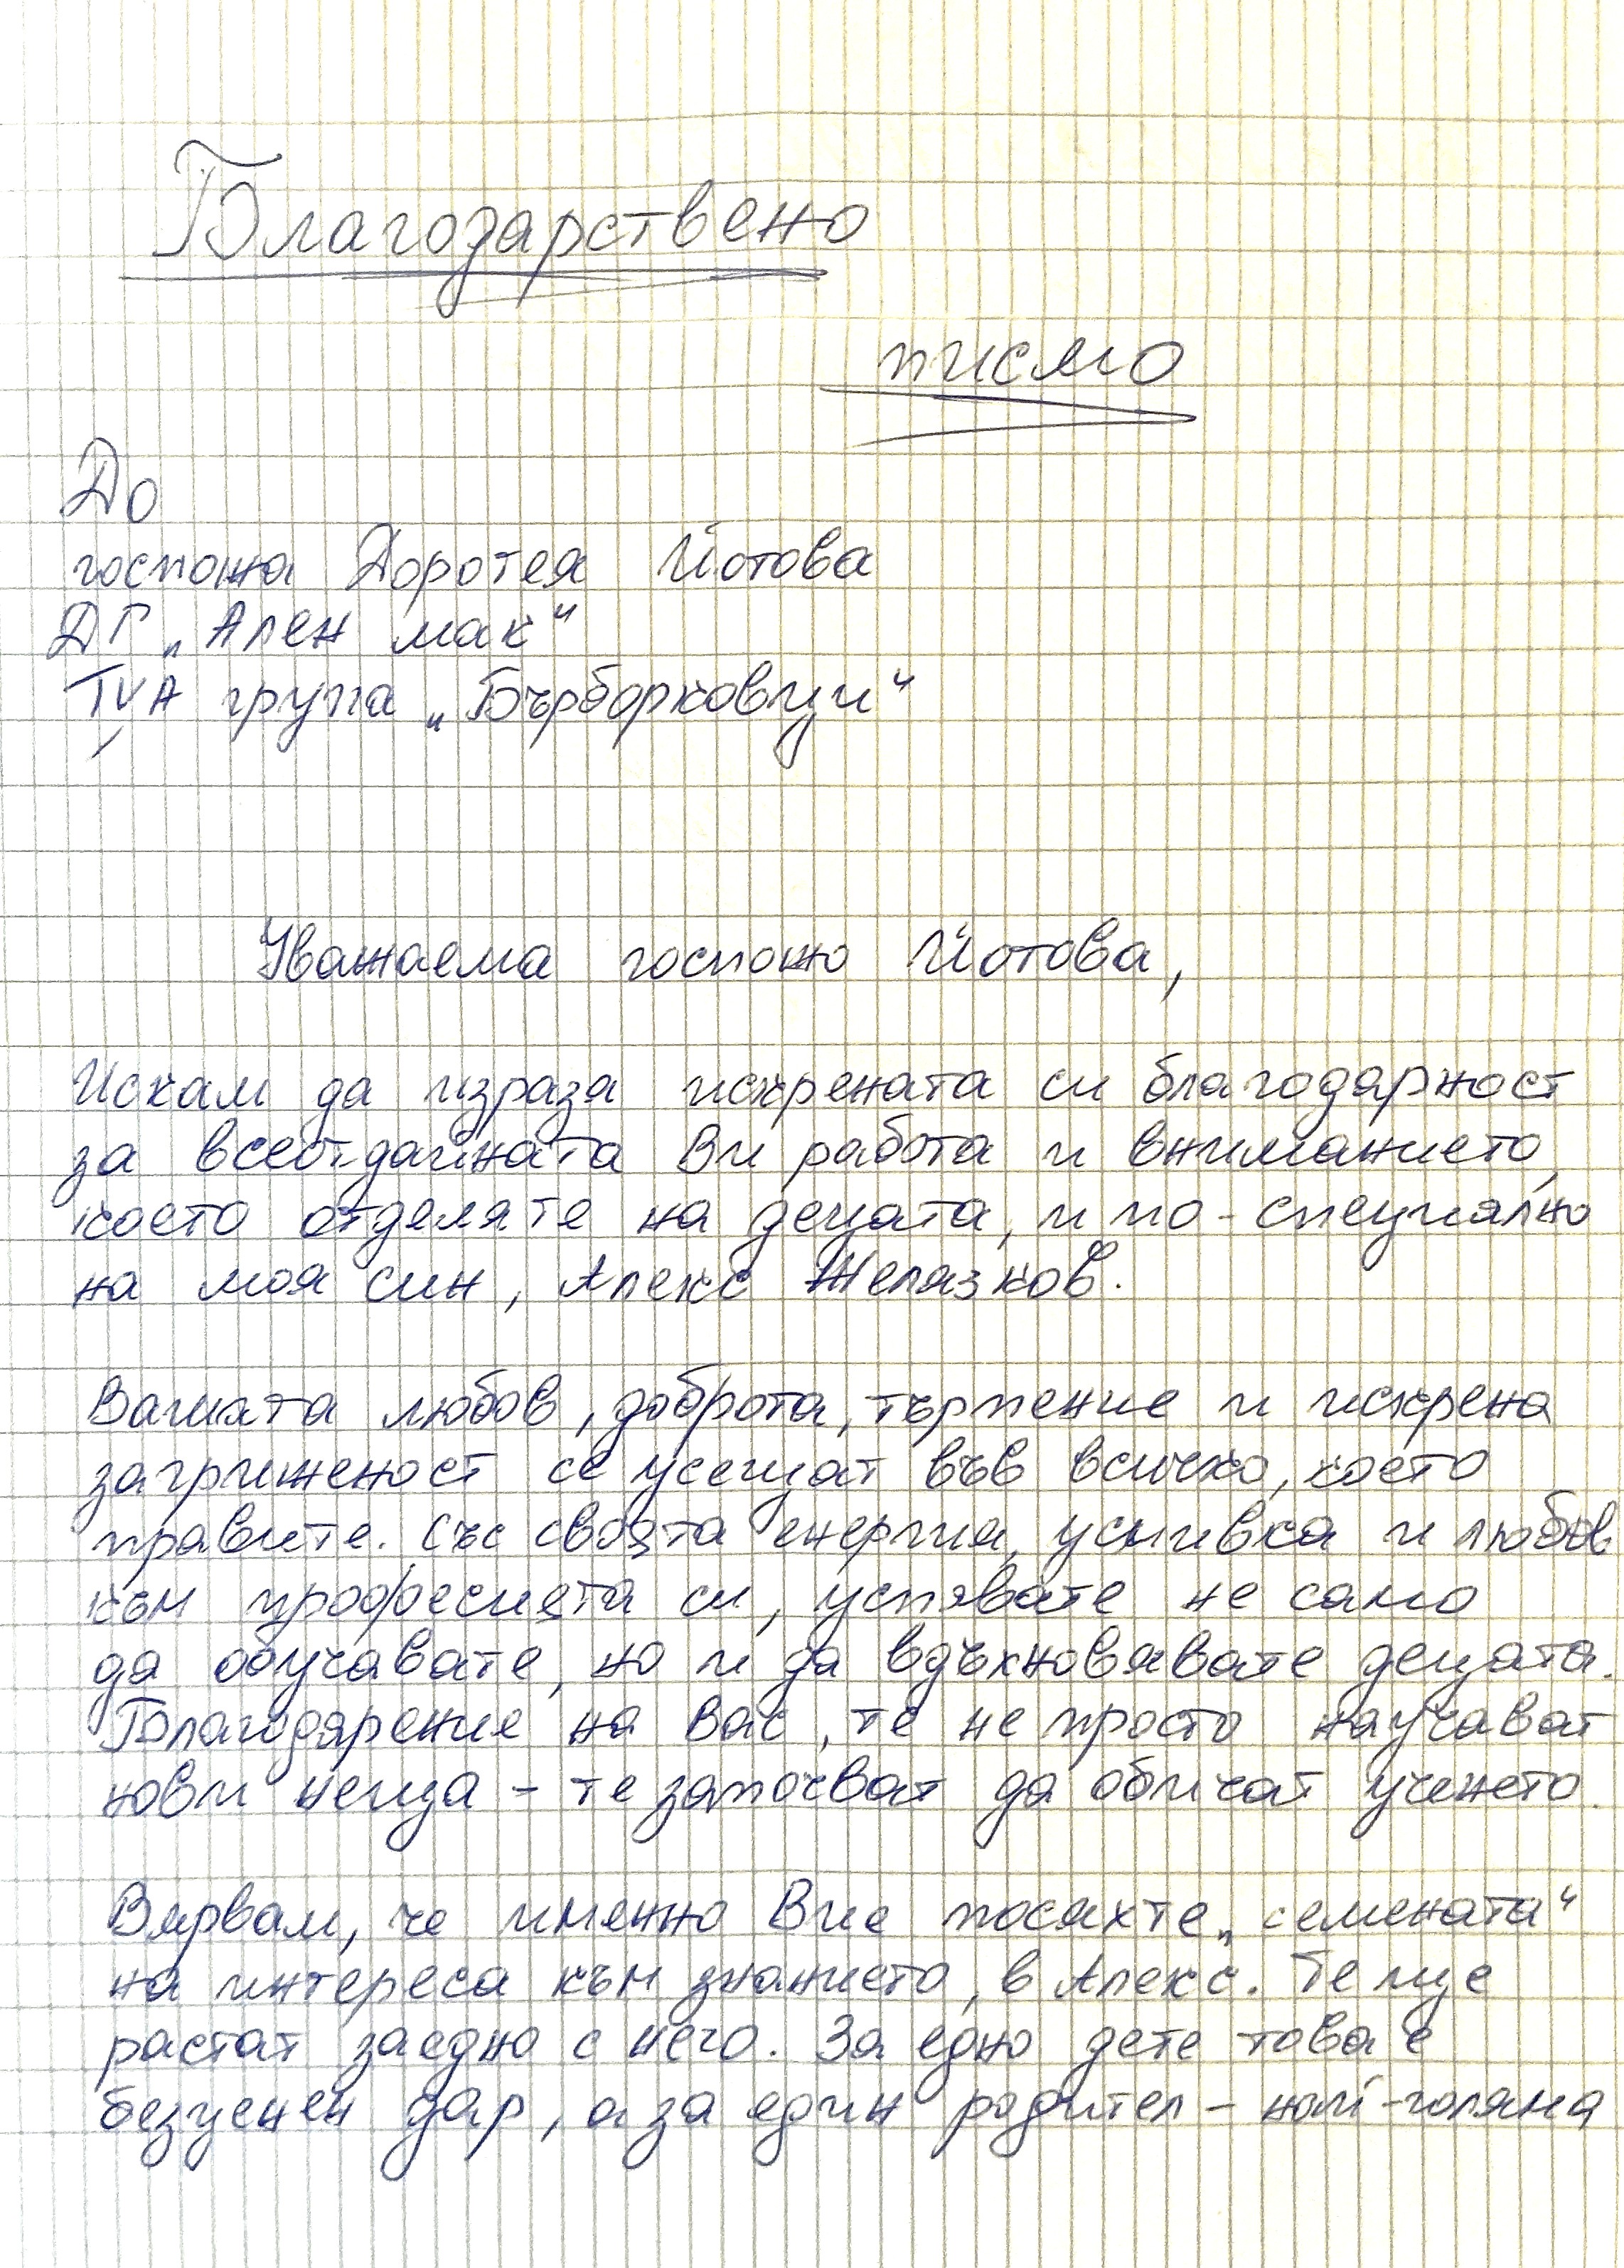 Благодарствено
писмо
До
госпожа Доротея Йотова
ДГ „Ален мак“
IVА група „Бърборковци“
Уважаема госпожо Йотова,
Искам да изразя искрената си благодарност
за всеотдайната Ви работа и вниманието,
което отделяте на децата, и по-специално
на моя син, Алекс Желязков.
Вашата любов, доброта, търпение и искрена
загриженост се усещат във всичко, което
правите. Със своята енергия, усмивка и любов
към професията си, успявате не само
да обучавате, но и да вдъхновявате децата.
Благодарение на Вас, те не просто научават
нови неща - те започват да обичат ученето.
Вярвам, че именно Вие посяхте „семената“
на интереса към знанието, в Алекс. Те ще
растат заедно с него. За едно дете това е
безценен дар, а за един родител - най-голяма